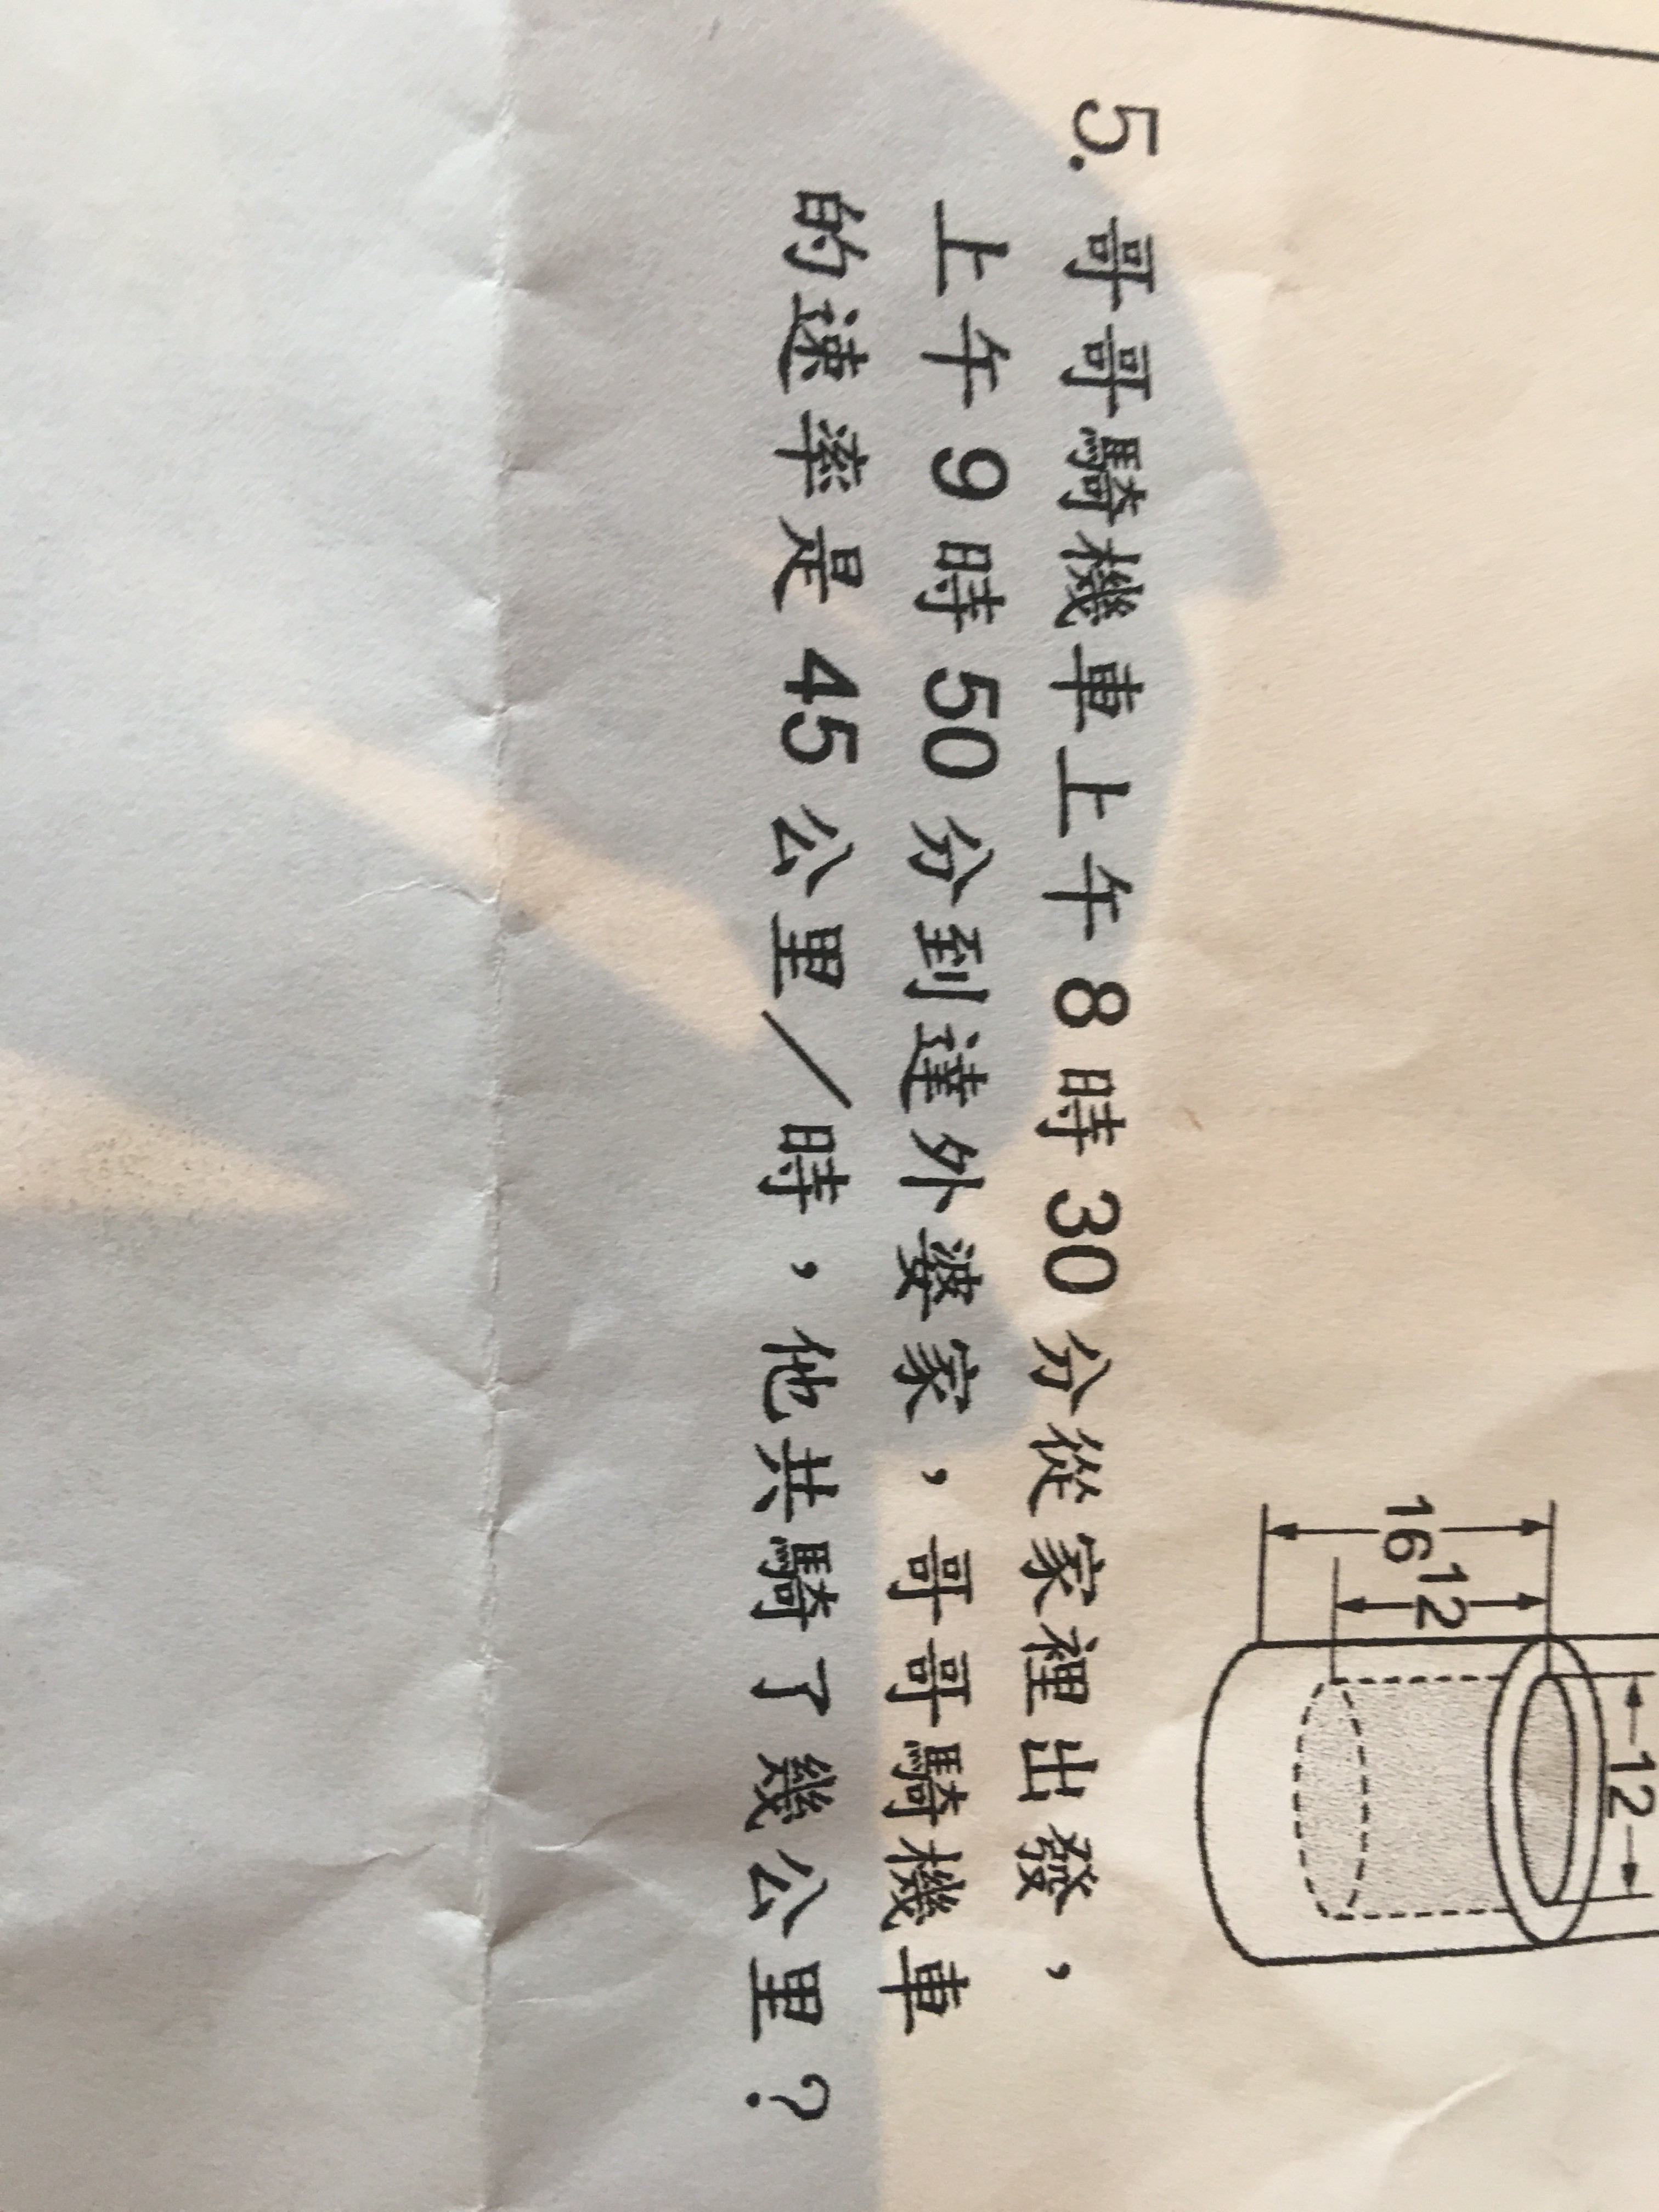 16
12
12
5. 哥哥騎機車上午 8 時 30 分從家裡出發，
上午 9 時 50 分到達外婆家，哥哥騎機車
的速率是 45 公里／時，他共騎了幾公里？